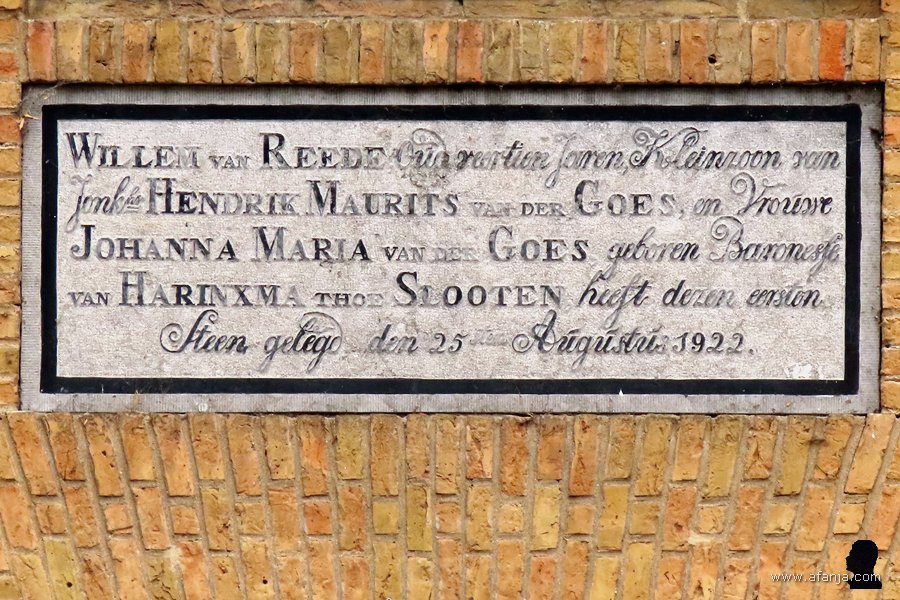 WILLEM VAN REEDE Oud veertien Jaren, Kleinzoon van
Jonkhr HENDRIK MAURITS VAN DER GOES, en Vrouwe
JOHANNA MARIA VAN DER GOES geboren Baronesse
VAN HARINXMA THOE SLOOTEN heeft dezen eersten
Steen gelegd den 25sten Augustus 1922.
www.afanja.com